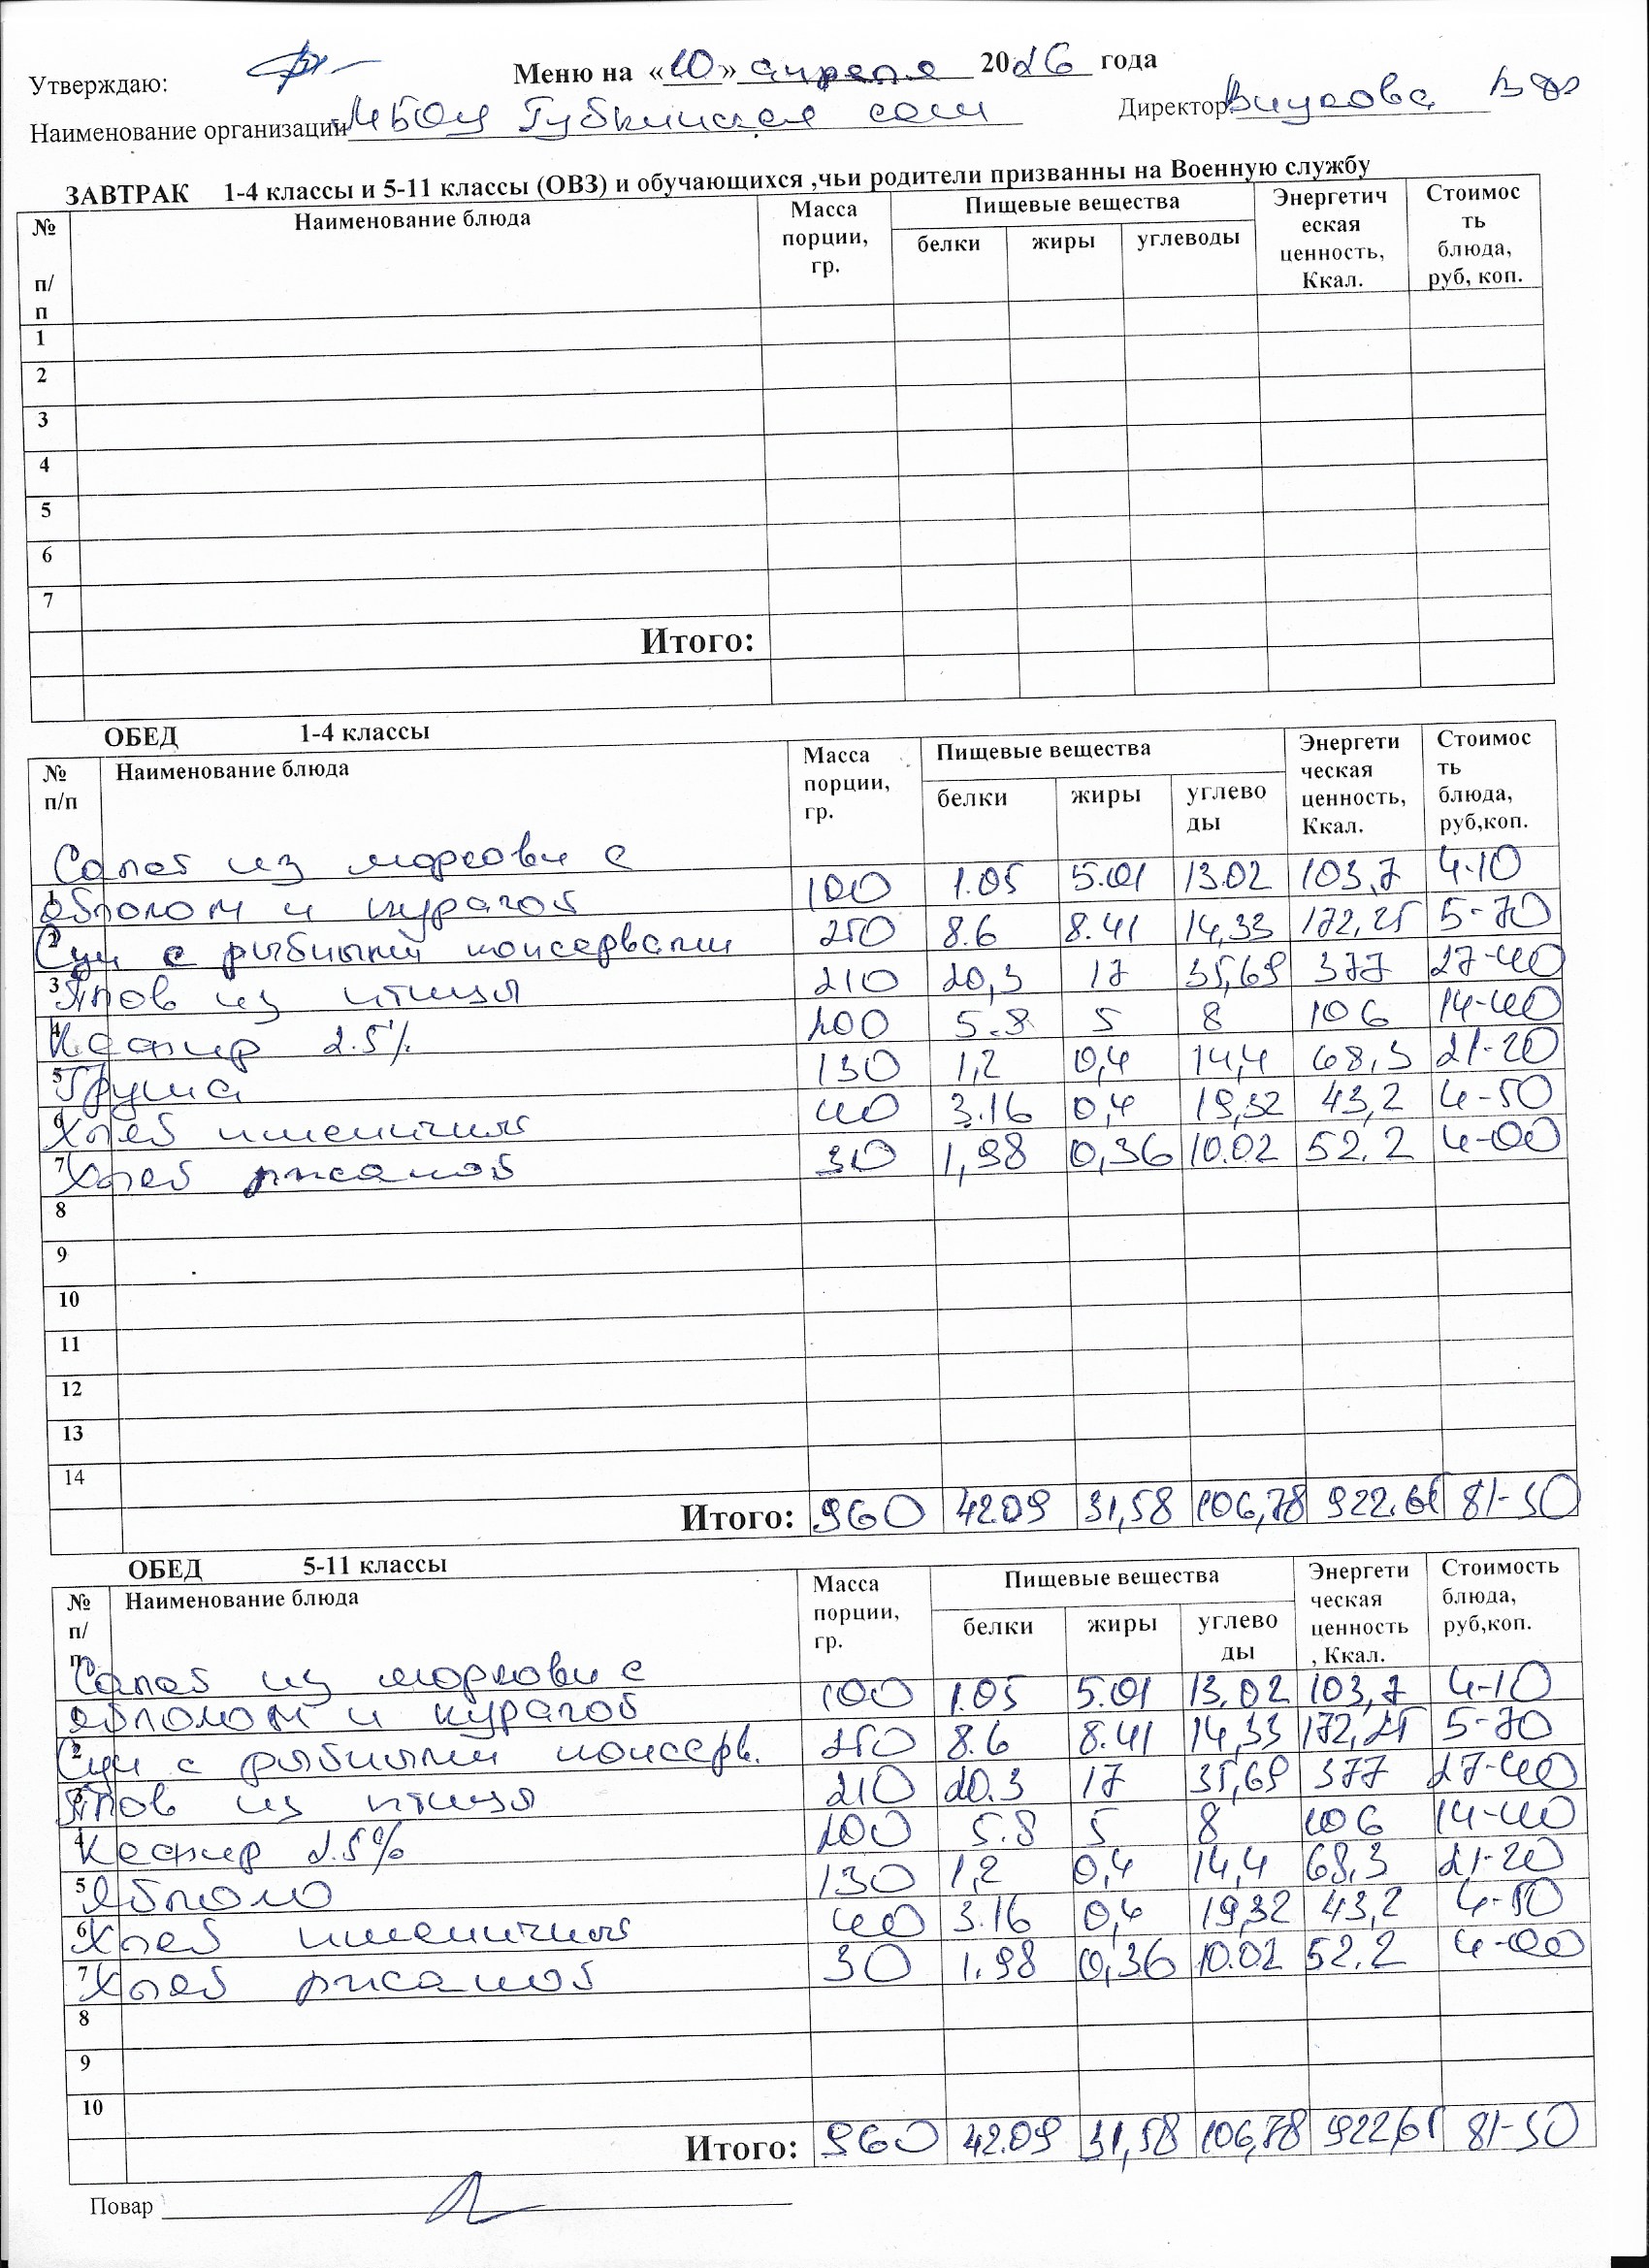 Утверждаю:
Меню на «10» апреля 2026 года
Наименование организации МБОУ Губкинская сош Директор: Внукова В
ЗАВТРАК 1-4 классы и 5-11 классы (ОВЗ) и обучающихся ,чьи родители призванны на Военную службу
№ п/п Наименование блюда Масса порции, гр. Пищевые вещества белки жиры углеводы Энергетическая ценность, Ккал. Стоимость блюда, руб, коп.
1
2
3
4
5
6
7
Итого:
ОБЕД 1-4 классы
№ п/п Наименование блюда Масса порции, гр. Пищевые вещества белки жиры углеводы Энергетическая ценность, Ккал. Стоимость блюда, руб,коп.
Салат из моркови с
1 яблоком и курагой 100 1.05 5.01 13.02 103,7 4-10
2 Суп с рыбными консервами 250 8.6 8.41 14,33 172,25 5-70
3 Плов из птицы 210 20,3 17 35,69 377 27-40
4 Кефир 2.5% 200 5.8 5 8 106 14-40
5 Груша 130 1,2 0,4 14,4 68,3 21-20
6 Хлеб пшеничный 40 3.16 0,4 19,32 43,2 4-50
7 Хлеб ржаной 30 1,98 0,36 10.02 52.2 4-00
8
9
10
11
12
13
14
Итого: 960 42.09 31,58 106,78 922.65 81-30
ОБЕД 5-11 классы
№ п/п Наименование блюда Масса порции, гр. Пищевые вещества белки жиры углеводы Энергетическая ценность, Ккал. Стоимость блюда, руб,коп.
Салат из моркови с
яблоком и курагой 100 1.05 5.01 13,02 103,7 4-10
2 Суп с рыбными консерв. 250 8.6 8.41 14,33 172,25 5-70
3 Плов из птицы 210 20.3 17 35,69 377 27-40
4 Кефир 2.5% 200 5.8 5 8 106 14-40
5 Яблоко 130 1,2 0,4 14,4 68,3 21-20
6 Хлеб пшеничный 40 3.16 0,4 19,32 43,2 4-50
7 Хлеб ржаной 30 1.98 0,36 10.02 52.2 4-00
8
9
10
Итого: 960 42.09 31,58 106,78 922,65 81-30
Повар